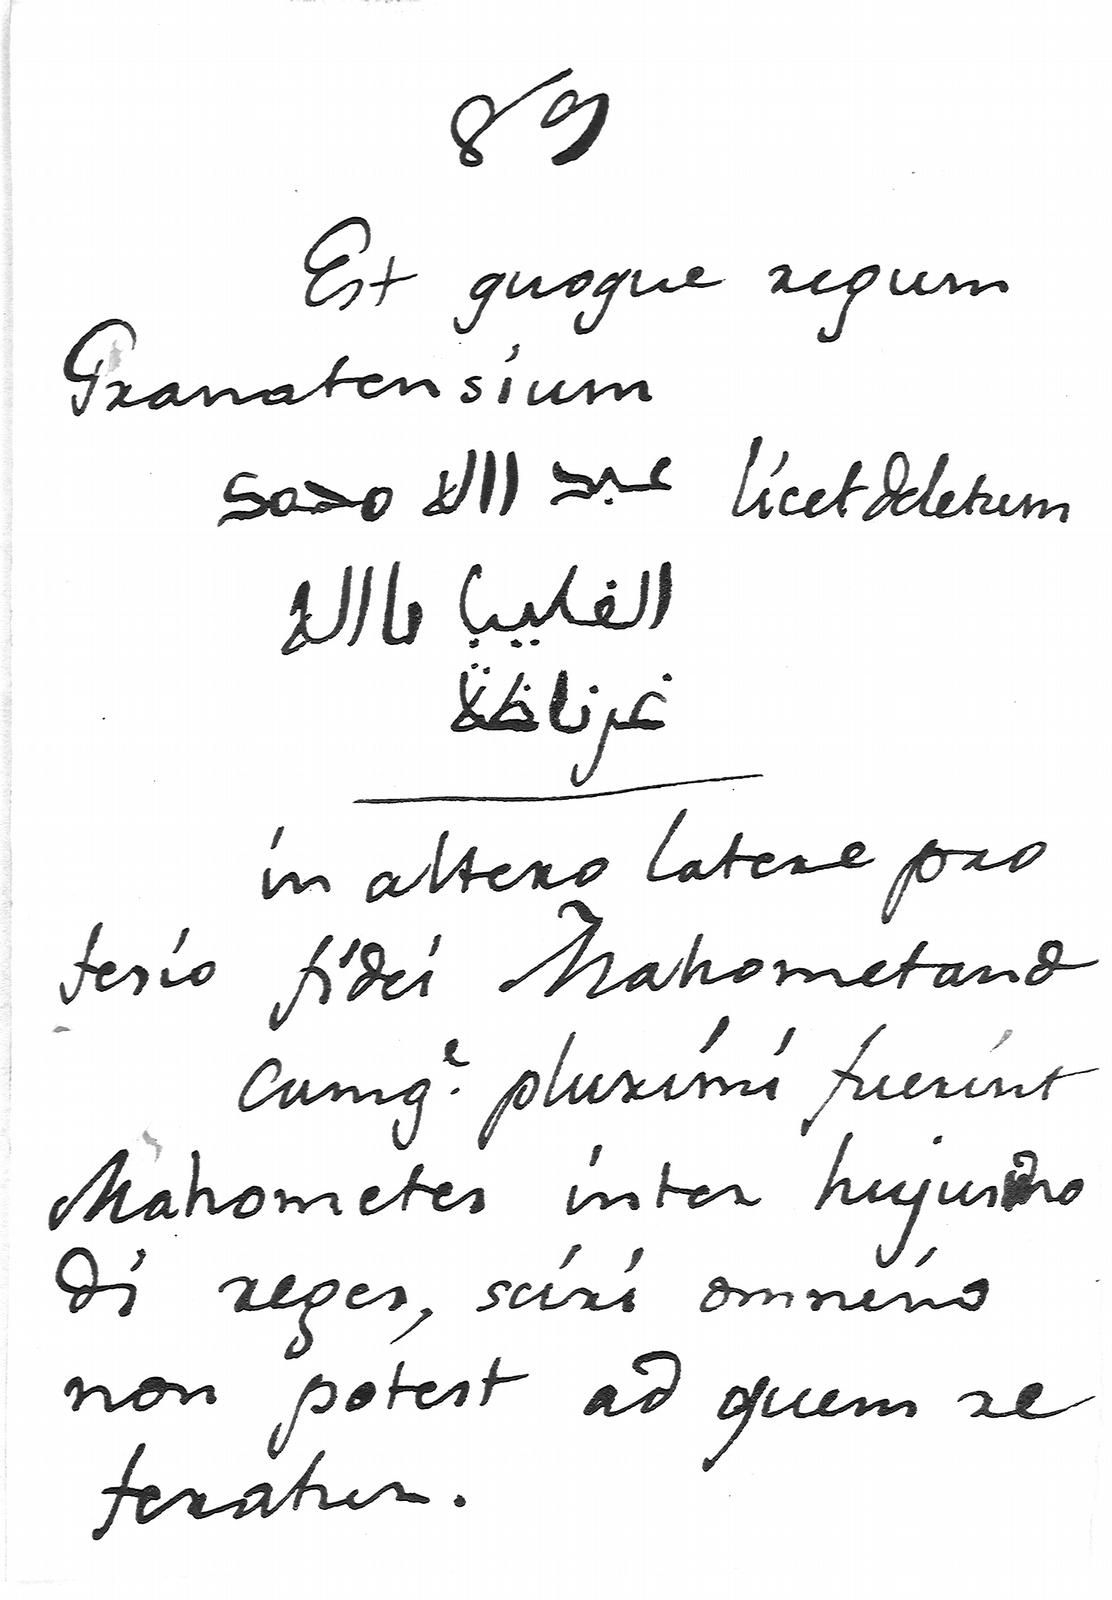 89
Est quoque regum
Granatensium
عبد الله محمد licet deletum
الغليب بالله
غرناظة
in altero latere pro
fesio fidei Mahometana
Cumq.e plurimi fuerint
Mahometes inter hujusmo
di reges, sciri omnino
non potest ad quem re
feratur.